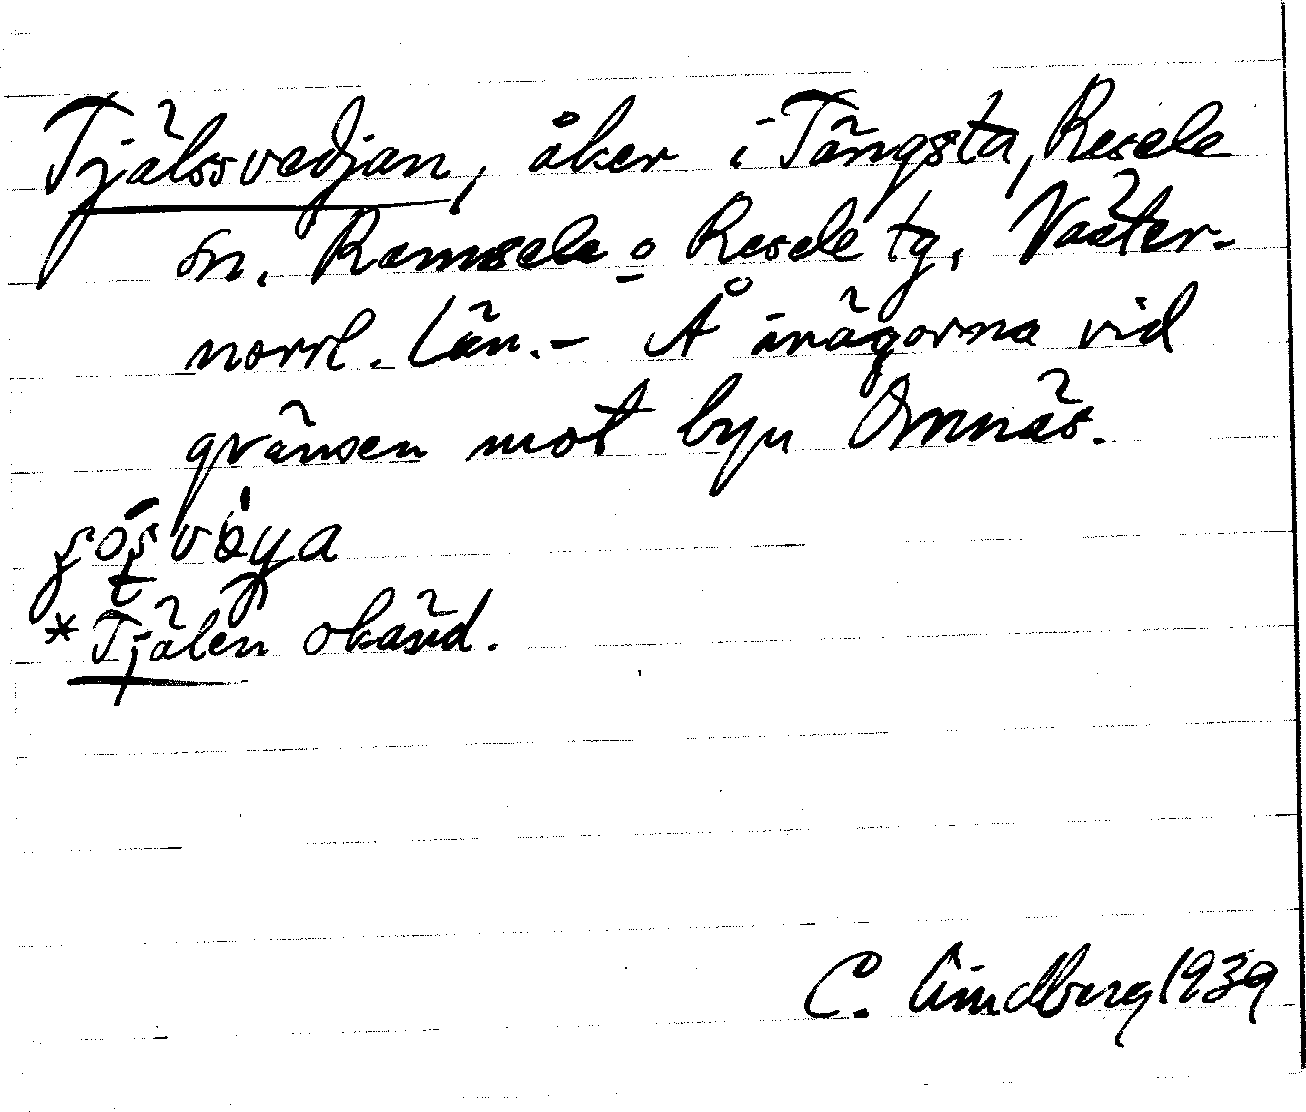 Tjälssvedjan, åker i Tängsta, Resele
sn. Ramsele o Resele tg, Väster-
norrl. län. - Å inägorna vid
gränsen mot byn Omnäs.
*Tjälen okänd.
C. Lindberg 1939